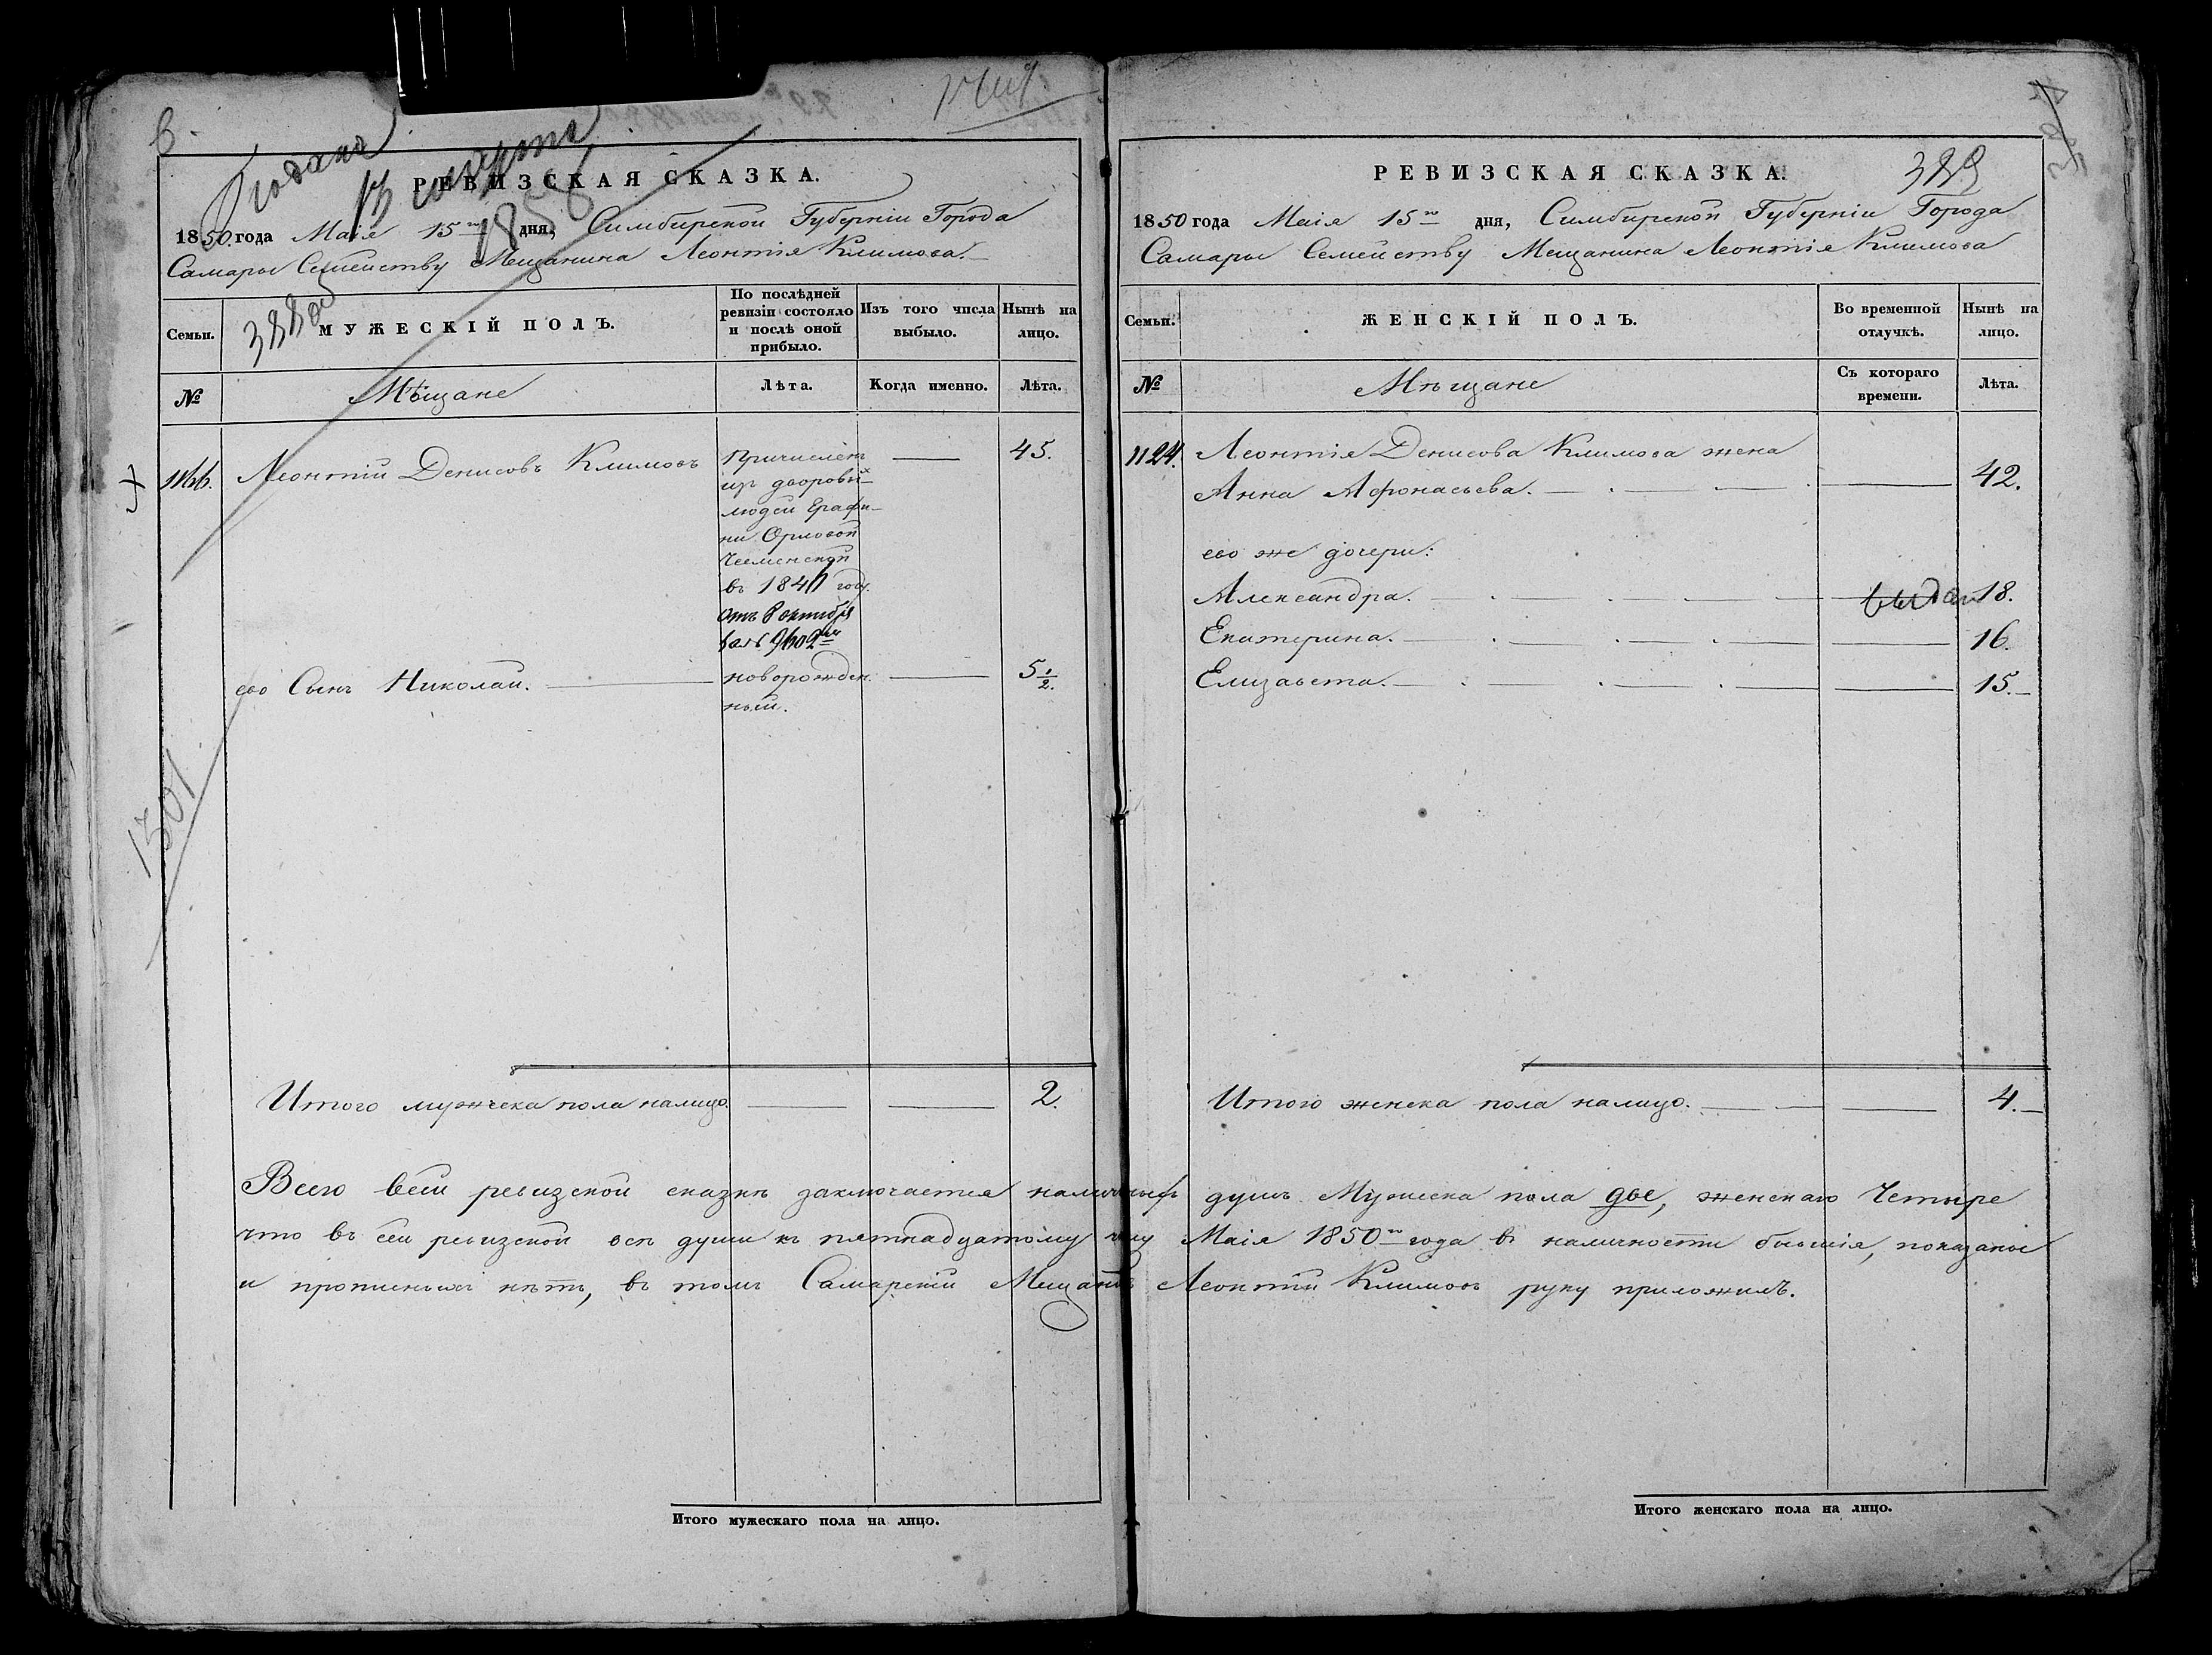 6.
Подана
15 августа
1850
РЕВИЗСКАЯ СКАЗКА.
1850 года Маія 15го дня, Симбирской Губерніи Города
Самары Семейству Мещанина Леонтія Климова.
388 об
Семьи.
МУЖЕСКІЙ ПОЛЪ.
По послѣдней
ревизіи состояло
и послѣ оной
прибыло.
Изъ того числа
выбыло.
Нынѣ на
лицо.
№
Мѣщане
Лѣта.
Когда именно.
Лѣта.
1166.
Леонтій Денисовъ Климовъ
Причисленъ
изъ дворовых
людей Графи-
ни Орловой
Чесменской
в 1840 году.
45.
его Сынъ Николай.
новорожден
ный.
5 1/2.
1301
Итого мужеска пола налицо.
2.
РЕВИЗСКАЯ СКАЗКА.
389
1850 года Маія 15го дня, Симбирской Губерніи Города
Самары Семейству Мещанина Леонтія Климова
Семьи.
ЖЕНСКІЙ ПОЛЪ.
Во временной
отлучкѣ.
Нынѣ на
лицо.
№
Мѣщане
Съ котораго
времени.
Лѣта.
1124.
Леонтія Денисова Климова жена
Анна Афонасьева.
42.
его же дочери:
Александра.
18.
Екатерина.
16.
Елизавета.
15.
Итого женска пола налицо.
4.
Всего всей ревизской сказкѣ заключается наличныхъ душъ Мужеска пола две, женскаго Четыре
что въ сей ревизской всѣ души къ пятнадцатому чслу Маія 1850го года в наличности бывшія, показаны
и прописныхъ нѣтъ, въ томъ Самарскій Мещанинъ Леонтій Климовъ руку приложилъ.
Итого мужескаго пола на лицо.
Итого женскаго пола на лицо.